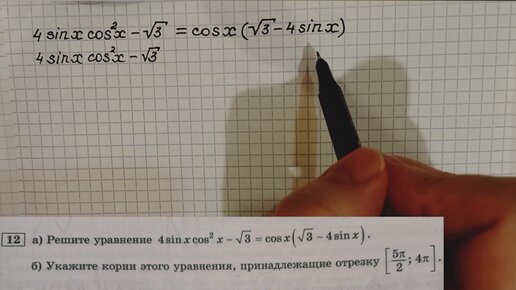 4 sin x cos²x - √3 = cos x (√3 - 4 sin x)
4 sin x cos²x - √3
12 а) Решите уравнение 4 sin x cos² x - √3 = cos x(√3 - 4 sin x).
б) Укажите корни этого уравнения, принадлежащие отрезку [5π/2; 4π].